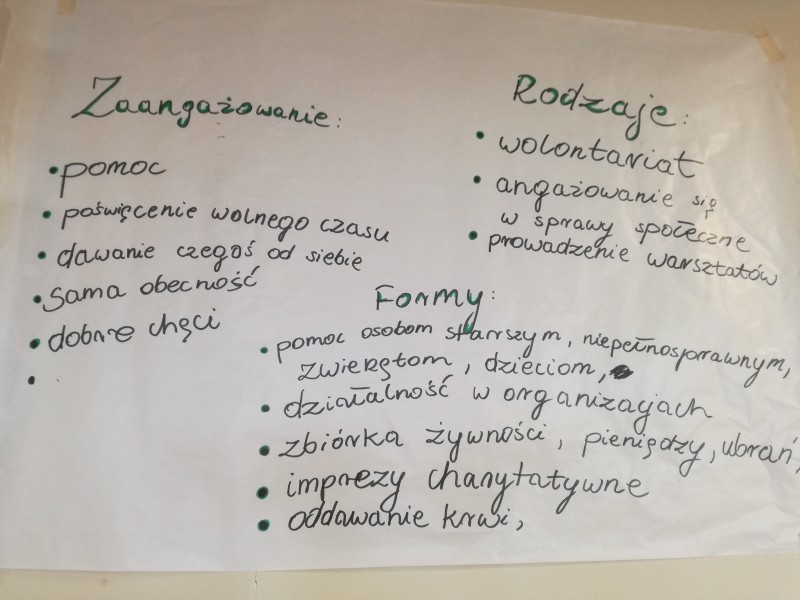 Zaangażowanie:
• pomoc
• poświęcenie wolnego czasu
• dawanie czegoś od siebie
• sama obecność
• dobre chęci
•
Rodzaje:
• wolontariat
• angażowanie się
w sprawy społeczne
• prowadzenie warsztatów
Formy:
• pomoc osobom starszym, niepełnosprawnym,
zwierzętom, dzieciom,
• działalność w organizacjach
• zbiórka żywności, pieniędzy, ubrań,
• imprezy charytatywne
• oddawanie krwi,